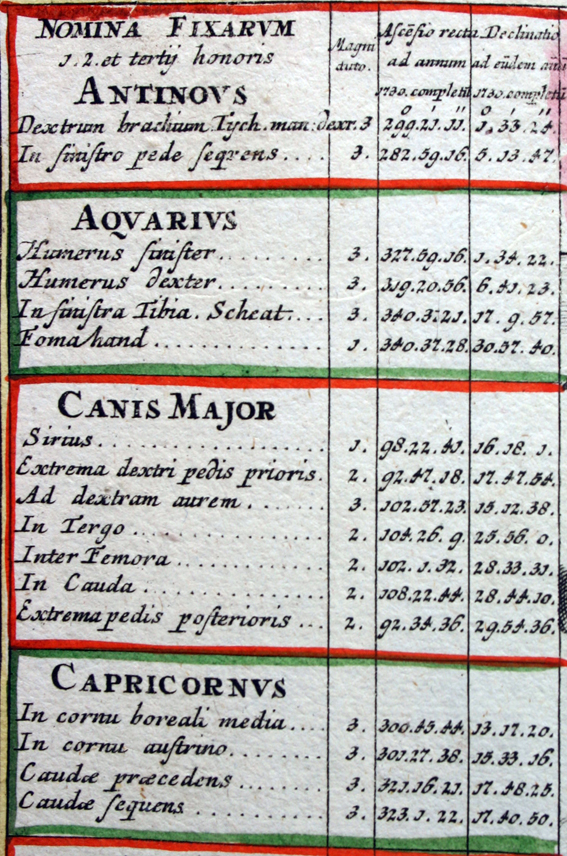 NOMINA FIXARVM
1. 2. et tertij honoris
Magni
tudo.
Ascēsio recta
ad annum
1730. completū
Declinatio
ad eūdem
1730. completū
ANTINOVS
o ı ıı o ı ıı
Dextrum brachium. Tych. man: dext. 3 299.21.11. 1.33.24.
In sinistro pede seqrens.... 3. 282.59.16. 5.13.47.
AQVARIVS
Humerus sinister......... 3. 327.59.16. 1.34.22.
Humerus dexter......... 3. 319.20.56. 6.41.23.
In sinistra Tibia. Scheat.... 3. 340.3.21. 17.9.57.
Fomahand ............ 1. 340.37.28. 30.57.40.
CANIS MAJOR
Sirius................ 1. 98.22.41. 16.18.1.
Extrema dextri pedis prioris. 2. 92.47.18. 17.47.54.
Ad dextram aurem....... 3. 102.57.23. 15.12.38.
In Tergo .............. 2. 104.26.9. 25.56.0.
Inter Femora........... 2. 102.1.32. 28.33.31.
In Cauda ............. 2. 108.22.44. 28.44.10.
Extrema pedis posterioris ... 2. 92.34.36. 29.54.36.
CAPRICORNVS
In cornu boreali media.... 3. 300.45.44. 13.17.20.
In cornu austrino........ 3. 301.27.38. 15.33.16.
Caudæ præcedens ....... 3. 321.16.21. 17.48.25.
Caudæ sequens ......... 3. 323.1.22. 17.40.50.